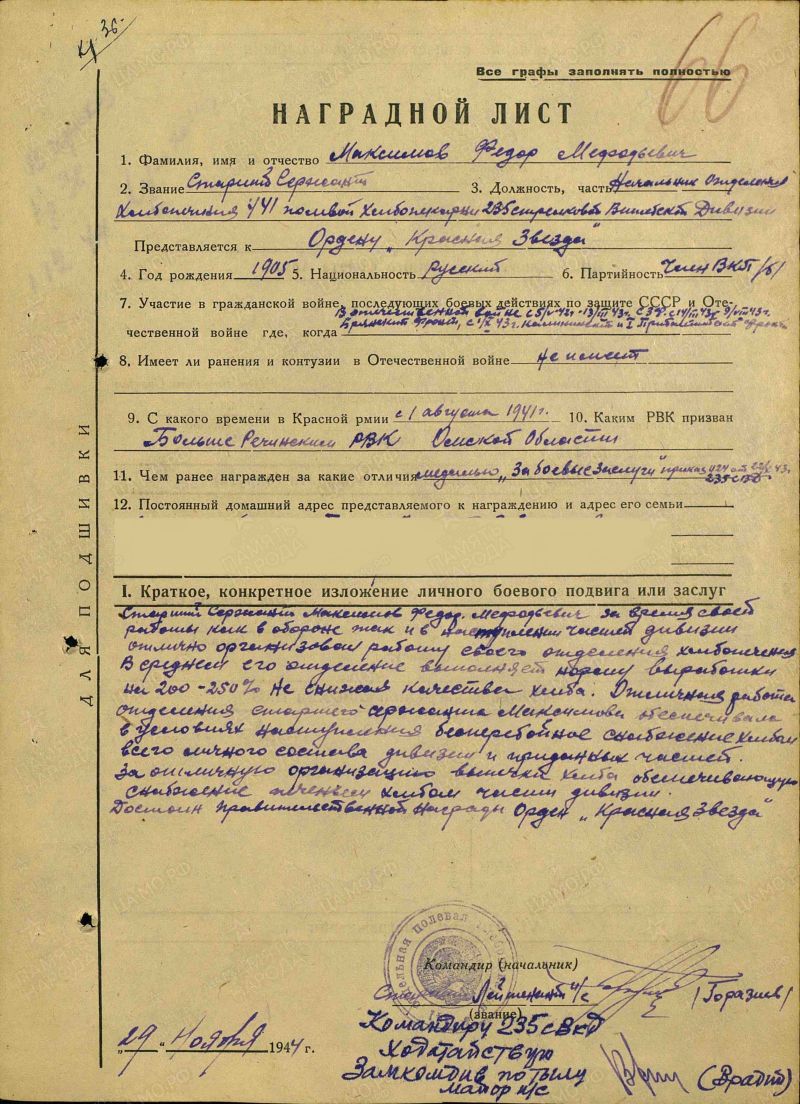 36
Все графы заполнять полностью
66
НАГРАДНОЙ ЛИСТ
1. Фамилия, имя и отчество Максимов Федор Мефодьевич
2. Звание Старший Сержант 3. Должность, часть Начальник Отделения
Хлебопечения 441 полевой Хлебопекарни 235 стрелковой Витебской Дивизии
Представляется к Ордену „Красная Звезда"
4. Год рождения 1905 5. Национальность Русский 6. Партийность Член ВКП/б/
7. Участие в гражданской войне, последующих боевых действиях по защите СССР и Оте-
В отечественной войне с
чественной войне где, когда Брянский Фронт, Калининский и I Прибалтийский Фронт
8. Имеет ли ранения и контузии в Отечественной войне не имеет
9. С какого времени в Красной рмии с 1 августа 1941г. 10. Каким РВК призван
Больше Реченским РВК Омской Области
11. Чем ранее награжден за какие отличия медалью „За боевые заслуги" приказ
235 СВД
12. Постоянный домашний адрес представляемого к награждению и адрес его семьи
ДЛЯ ПОДШИВКИ
I. Краткое, конкретное изложение личного боевого подвига или заслуг
Старший Сержант Максимов Федор Мефодьевич за время своей
работы как в обороне так и в наступлении частей дивизии
отлично организовал работу своего отделения хлебопечения
В среднем его отделение выполняет норму выработки
на 200-250% не снижая качества хлеба. Отличная работа
отделения старшего сержанта Максимова обеспечивала
в условиях наступления бесперебойное снабжение хлебом
всего личного состава дивизии и приданных частей.
За отличную организацию выпечки хлеба обеспечивающую
снабжение печеным хлебом части дивизии.
Достоин правительственной награды Орден „Красная Звезда"
Командир (начальник)
Старший Лейтенант и/с /Горазиев/
(звание)
„29" Ноября 1944 г.
Командиру 235 СВКД
Ходатайствую
Замкомдив по тылу
майор и/с (Врадий)